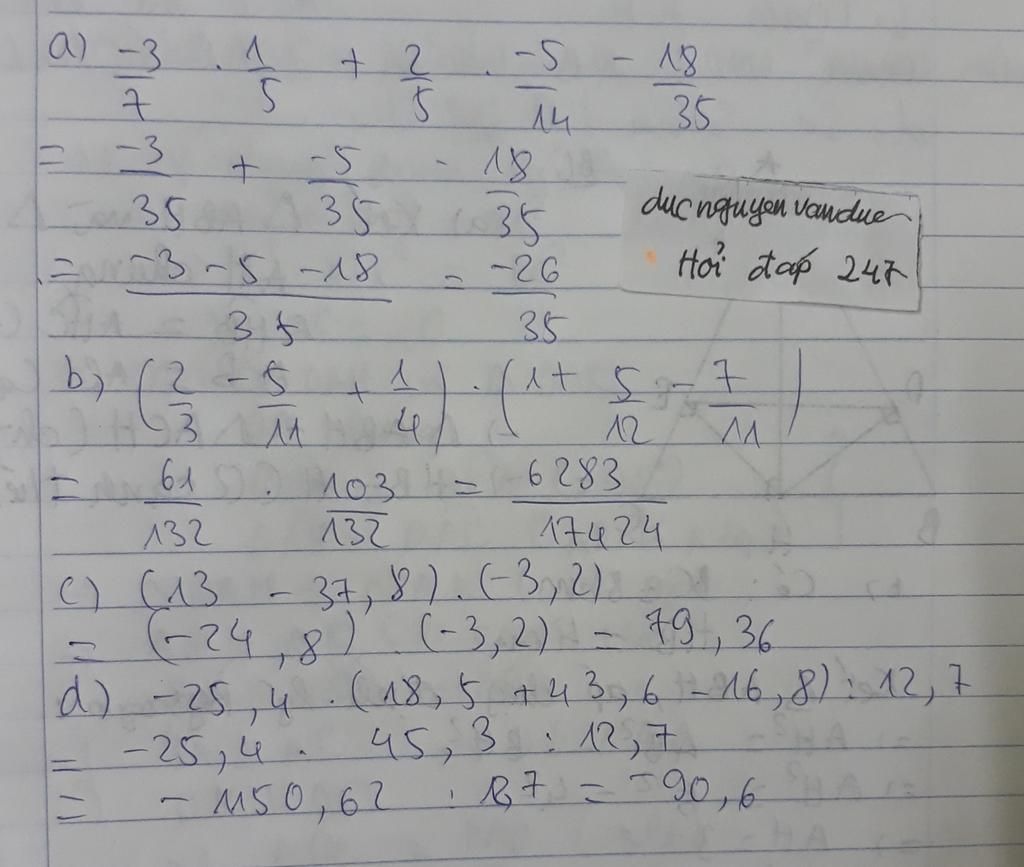 a) -3/7 . 1/5 + 2/5 . -5/14 - 18/35
= -3/35 + -5/35 - 18/35
= -3 - 5 - 18/35 = -26/35
ducnguyenvanduc
Hỏi đáp 247
b) (2/3 - 5/11 + 1/4) . (1 + 5/12 - 7/11)
= 61/132 . 103/132 = 6283/17424
c) (13 - 37,8) . (-3,2)
= (-24,8) . (-3,2) = 79,36
d) -25,4 . (18,5 + 43,6 - 16,8) : 12,7
= -25,4 . 45,3 : 12,7
= -1150,62 : 12,7 = -90,6